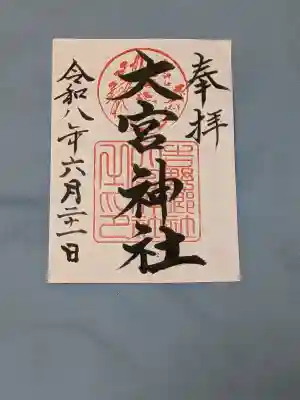 奉拝
大宮神社
令和八年六月二十一日